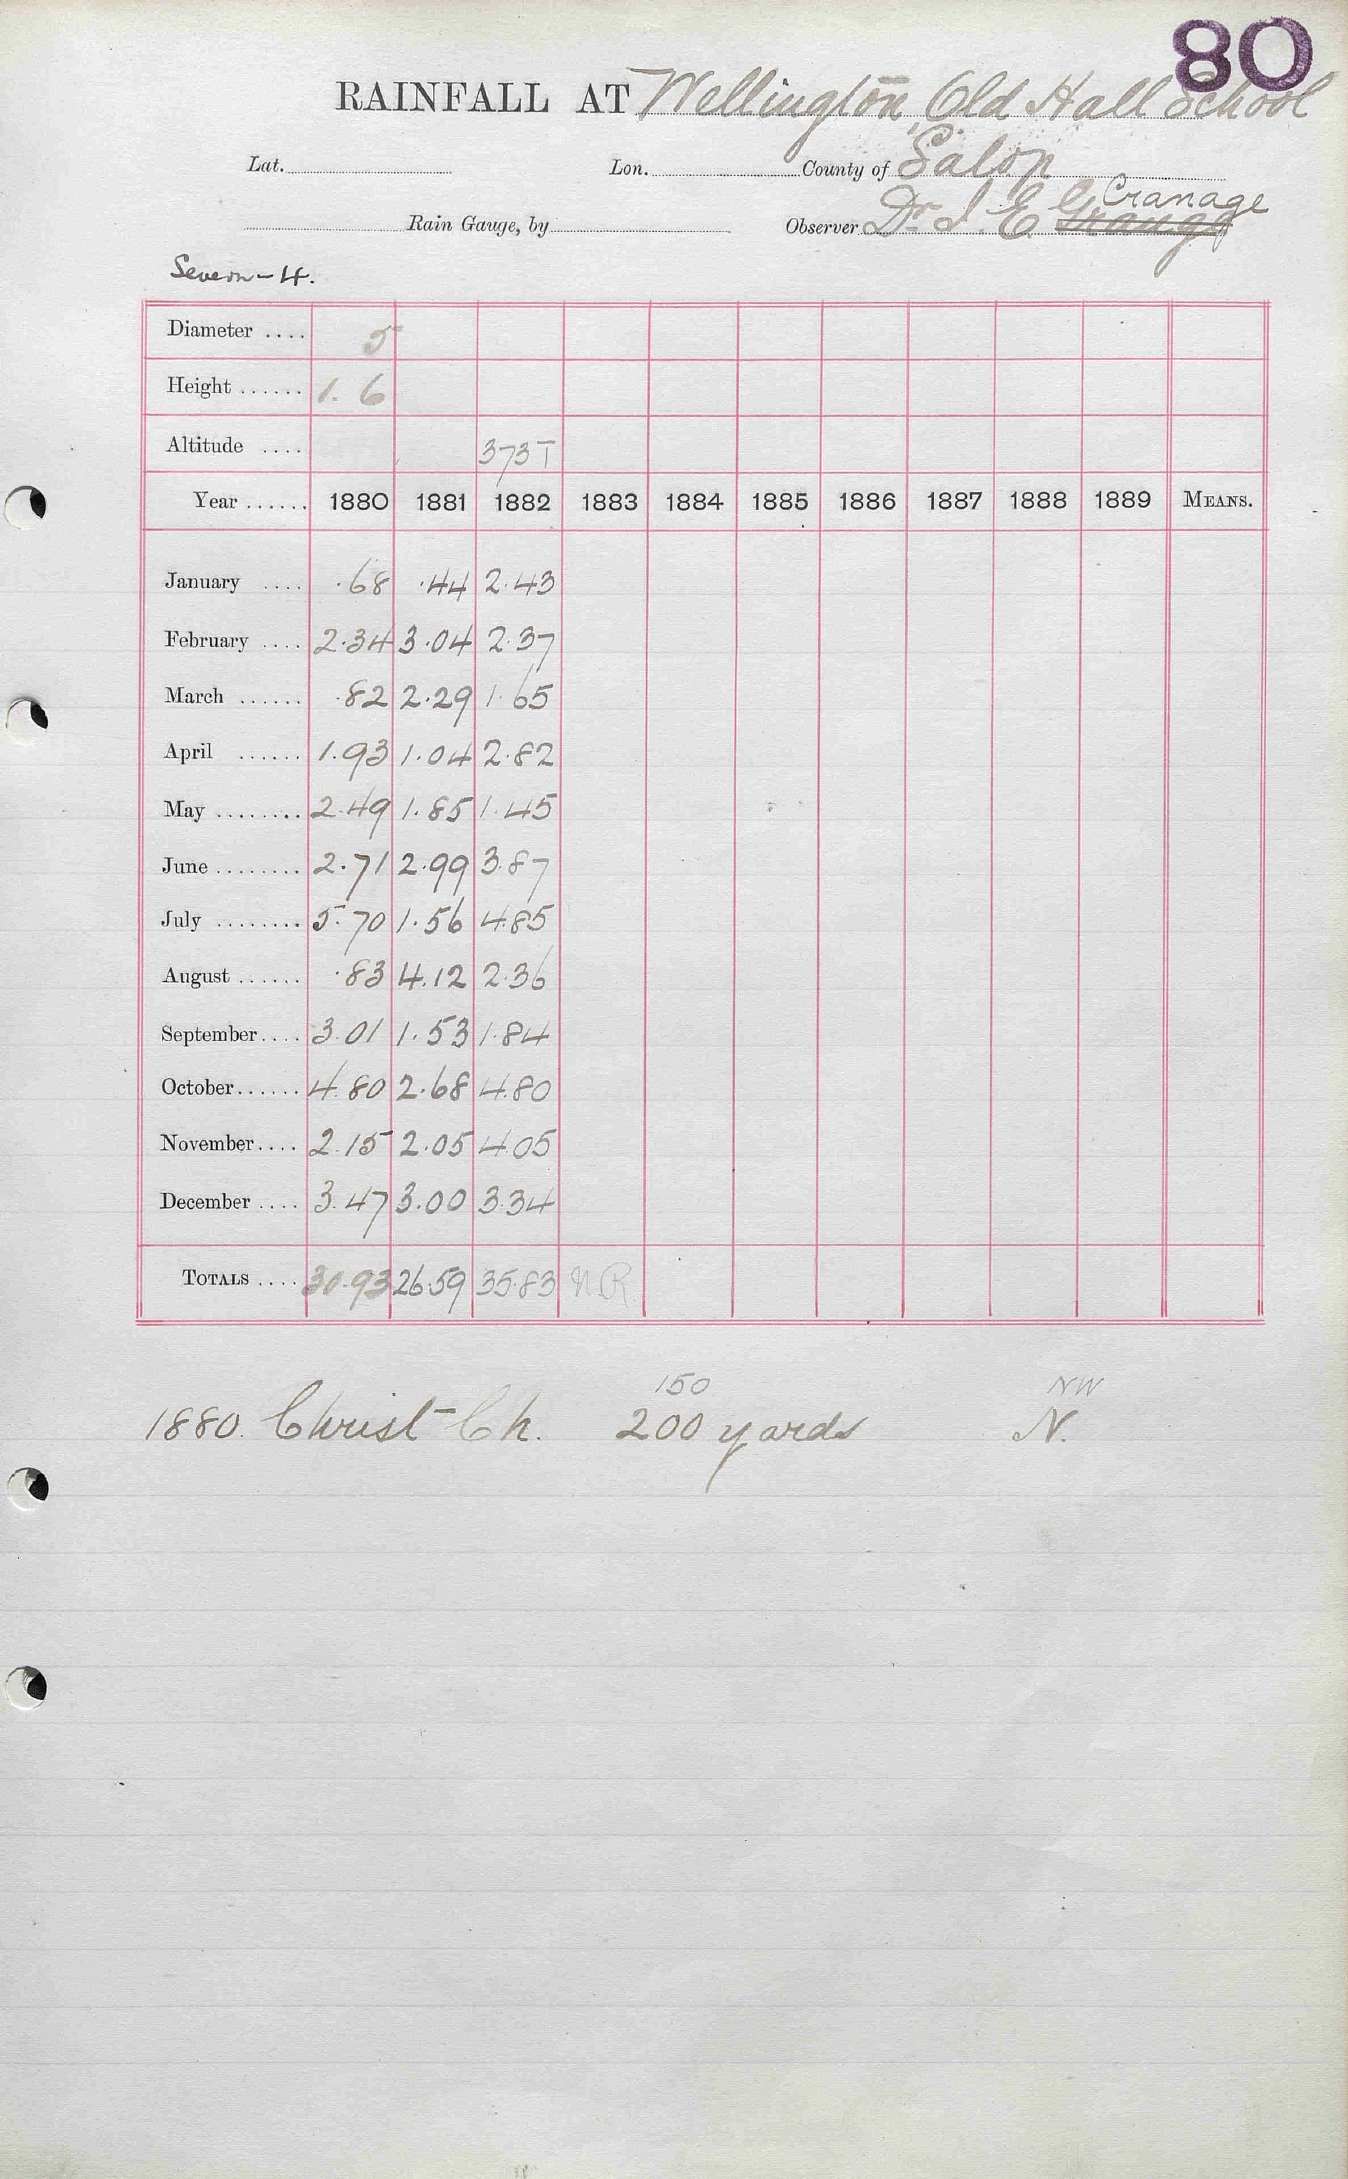 80
RAINFALL AT Wellington, Old Hall School
Lat. Lon. County of Salop
Cranage
Rain Gauge, by Observer Dr. J. E. Granage
Severn - 4.
Diameter .... 5
Height ...... 1. 6
Altitude .... 373 T
Year ...... 1880 1881 1882 1883 1884 1885 1886 1887 1888 1889 MEANS.
January .... .68 .44 2.43
February .... 2.34 3.04 2.37
March ...... .82 2.29 1.65
April ...... 1.93 1.04 2.82
May ........ 2.49 1.85 1.45
June ........ 2.71 2.99 3.87
July ........ 5.70 1.56 4.85
August ...... .83 4.12 2.36
September .... 3.01 1.53 1.84
October ...... 4.80 2.68 4.80
November .... 2.15 2.05 4.05
December .... 3.47 3.00 3.34
TOTALS .... 30.93 26.59 35.83 N.R.
150 NW
1880. Christ Ch. 200 yards N.